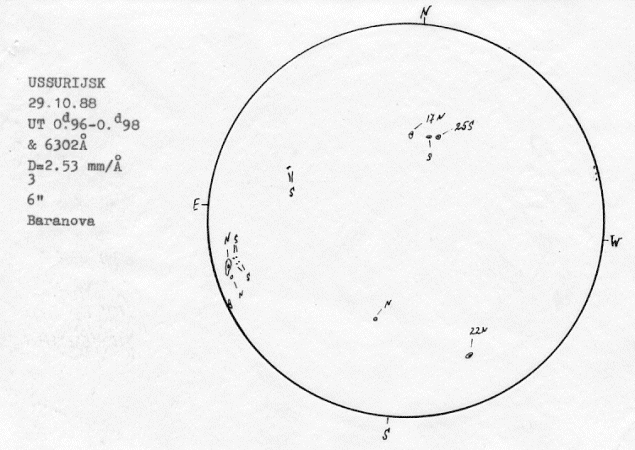 N
USSURIJSK
29.10.88
UT 0.ᵈ96-0.ᵈ98
& 6302Å
D=2.53 mm/Å
3
6"
Baranova
17N
25S
S
S
E
W
N S
S
N
N
22N
S